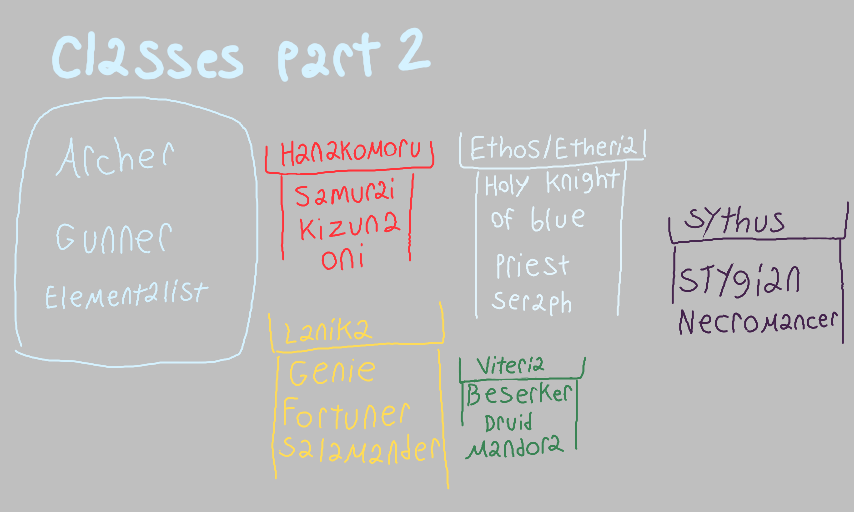 Classes part 2
Archer
Gunner
Elementalist
Hanakomoru
Samurai
Kizuna
oni
Ethos/Etheria
Holy Knight
of blue
Priest
seraph
Sythus
Stygian
Necromancer
Lanika
Genie
Fortuner
Salamander
Viteria
Beserker
Druid
Mandora